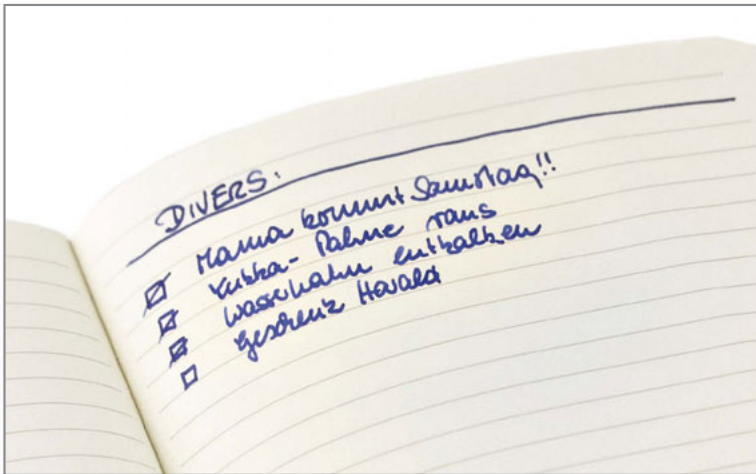 DIVERS:
Mama kommt Samstag!!
Yukka-Palme raus
Wasserhahn entkalken
Geschenk Harald